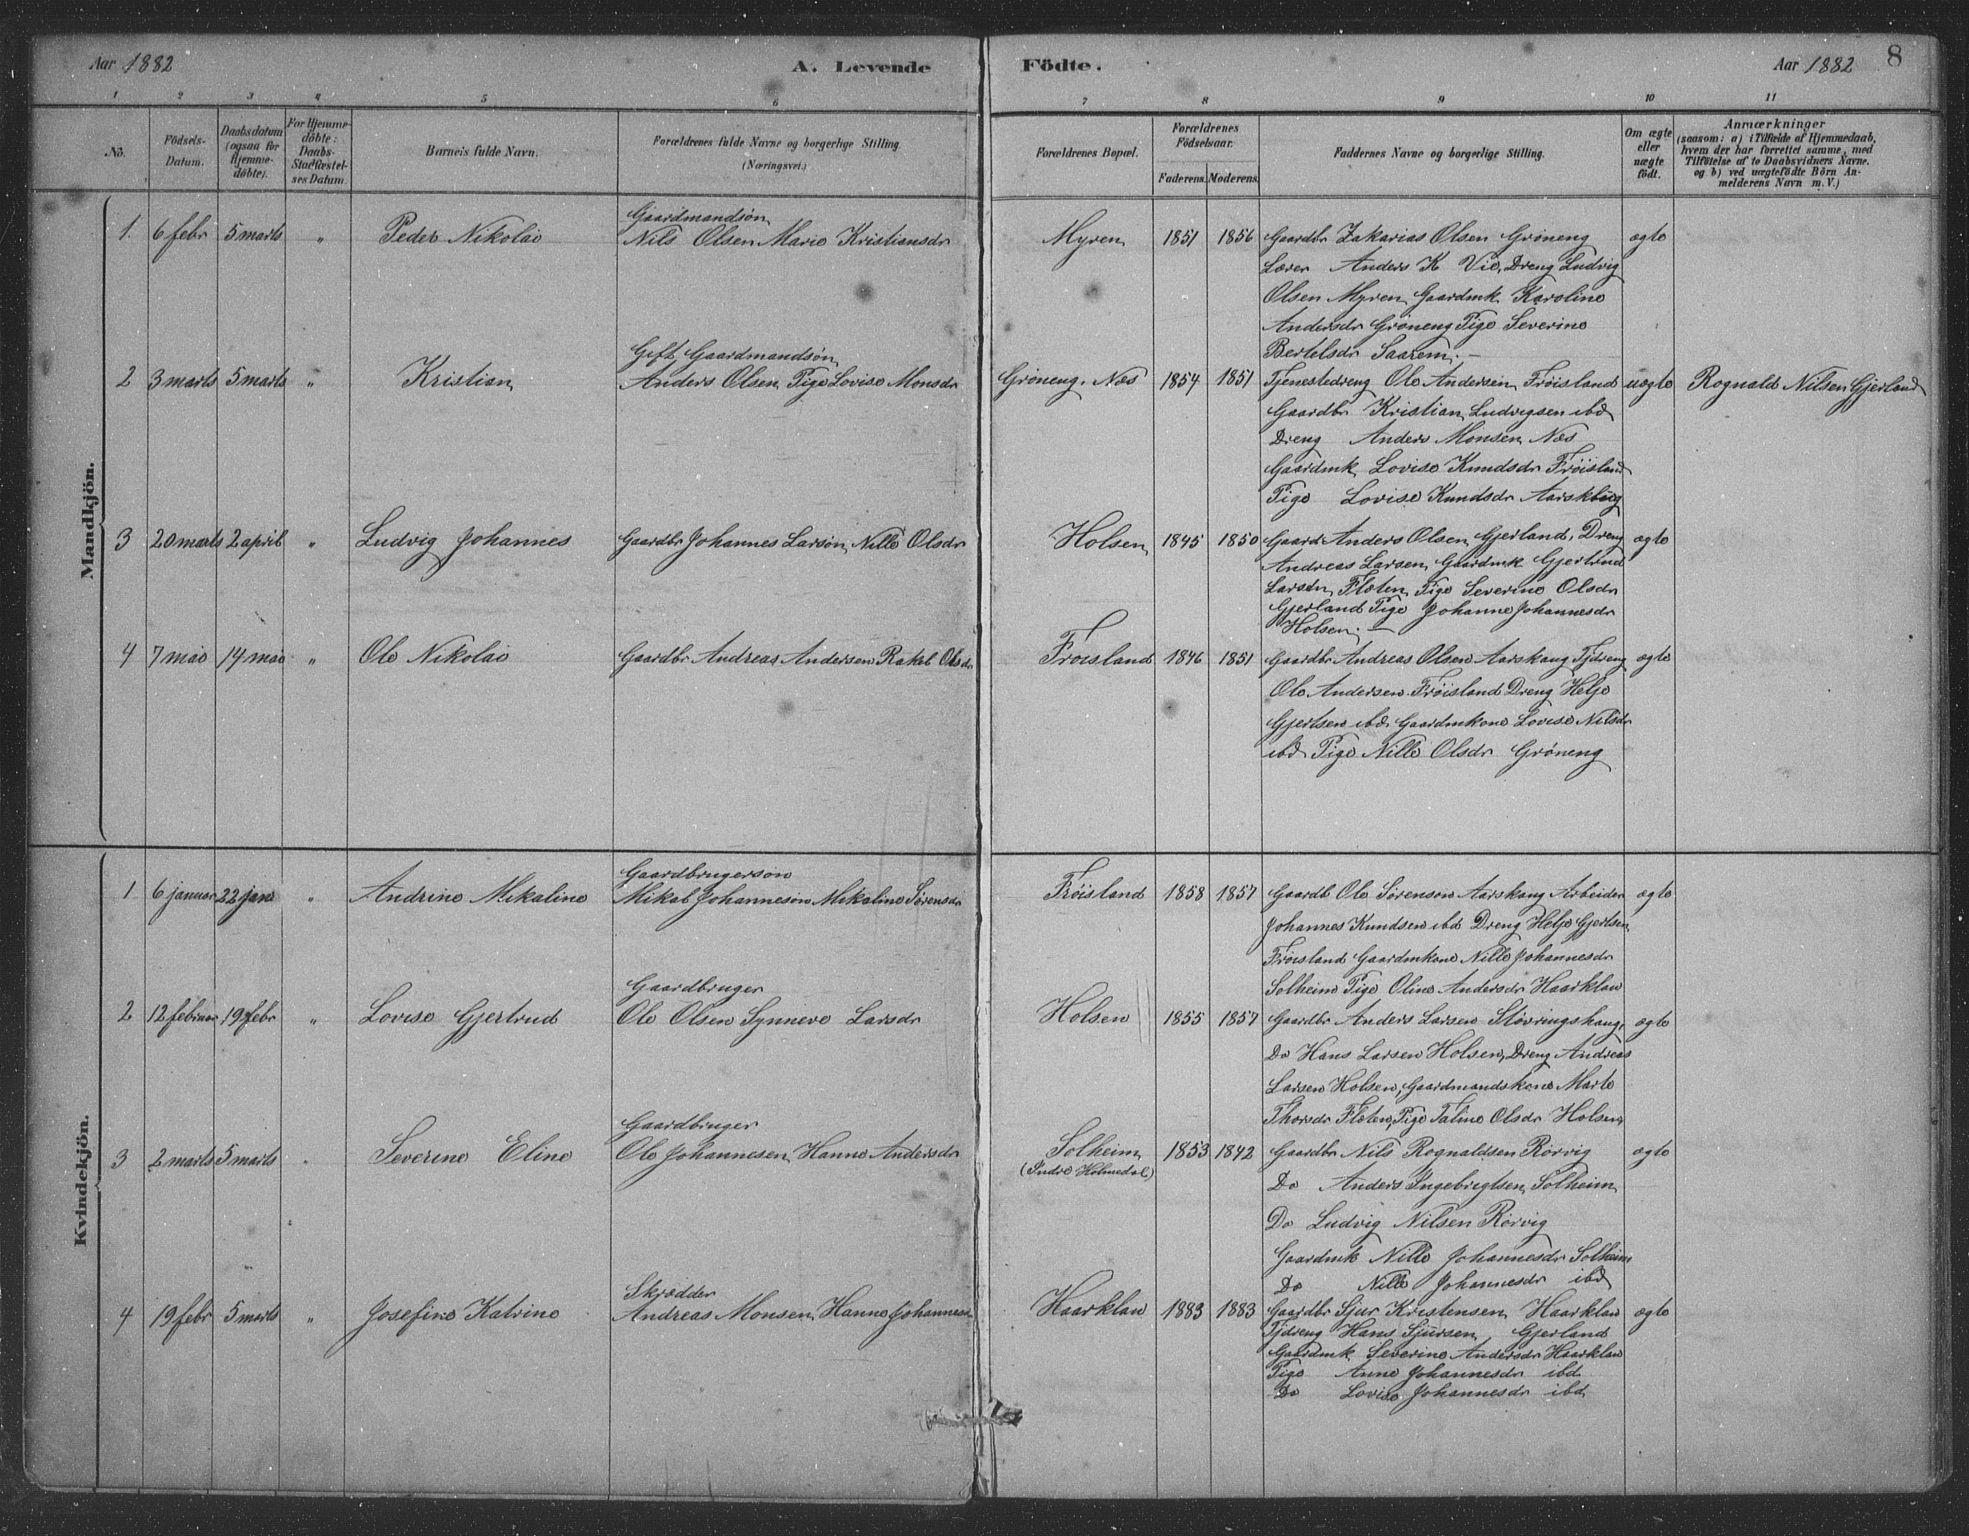 Aar 1882 A. Levende Födte. Aar 1882 8
1 2 3 4 5 6 7 8 9 10 11
No.
Födsels-
Datum.
Daabsdatum
(ogsaa for
Hjemme-
döbte).
For Hjemme-
döbte:
Daabs-
Stadfæstel-
ses Datum.
Barnets fulde Navn.
Forældrenes fulde Navne og borgerlige Stilling.
(Næringsvei.)
Forældrenes Bopæl.
Forældrenes
Födselsaar.
Faderens. Moderens.
Faddernes Navne og borgerlige Stilling.
Om ægte
eller
uægte
födt.
Anmærkninger
(saasom: a) i Tilfælde af Hjemmedaab,
hvem der har forrettet samme, med
Tilföielse af to Daabsvidners Navne.
og b) ved uægtefödte Börn An-
melderens Navn m. V.)
Mandkjön.
Gaardmandsøn
1. 6 febr 5 marts " Peder Nikolai Nils Olsen Marie Kristiansdr Myren 1851 1856 Gaardbr Zakarias Olsen Grøneng ægte
Lærer Anders K Vie, Dreng Ludvig
Olsen Myren Gaardmk Karoline
Andersdr Grøneng Pige Severine
Bertelsdr Saarem. —
Gift Gaardmandsøn
2 3 marts 5 marts " Kristian Anders Olsen Pige Lovise Monsdr Grøneng. Næs 1854 1851 Tjenestedreng Ole Andersen Frøisland uægte Rognald Nilsen Gjerland
Gaardbr Kristian Ludvigsen ibd
Dreng Anders Monsen Næs
Gaardmk Lovise Knudsdr Frøisland
Pige Lovise Knudsdr Aarskoug
3 20 marts 2 april " Ludvig Johannes Gaardbr Johannes Larsøn Nille Olsdr Holsen 1845 1850 Gaard Anders Olsen Gjerland, Dreng ægte
Andreas Larsen, Gaardmk Gjertrud
Larsdr Fløten Pige Severine Olsdr
Gjerland Pige Johanne Johannesdr
Holsen. —
4 7 mai 14 mai " Ole Nikolai Gaardbr Andreas Andersen Rakel Olsdr Frøisland 1846 1851 Gaardbr Andreas Olsen Aarskaug Tjdreng ægte
Ole Andersen Frøisland Dreng Helje
Gjertsen ibd Gaardmkone Lovise Nilsdr
ibd Pige Nille Olsdr Grøneng
Kvindekjön.
Gaardbrugersøn
1 6 januar 22 jan " Andrine Mikaline Mikal Johannesøn Mikaline Sørensdr Frøisland 1858 1857 Gaardb Ole Sørensøn Aarskaug Arbeider ægte
Johannes Knudsen ibd Dreng Helje Gjertsen
Frøisland Gaardmkone Nille Johannesdr
Solheim Pige Oline Andersdr Haarklau
Gaardbruger
2 12 februar 19 febr " Lovise Gjertrud Ole Olsen Synneve Larsdr Holsen 1855 1857 Gaardbr Anders Larsen Støvringshaug ægte
Do Hans Larsen Holsen, Dreng Andreas
Larsen Holsen, Gaardmandskone Marte
Thorsdr Fløten, Pige Taline Olsdr Holsen
Gaardbruger
3 2 marts 5 marts " Severine Eline Ole Johannesen Hanne Andersdr Solheim 1853 1842 Gaardbr Nils Rognaldsen Rørvig ægte
(Indre Holmedal)
Do Anders Ingebrigtsen Solheim
Do Ludvig Nilsen Rørvig
Gaardmk Nille Johannesdr Solheim
Do Nille Johannesdr ibd
Skrædder
4 19 febr 5 marts " Josefine Katrine Andreas Monsen, Hanne Johannesdr Haarklau 1883 1883 Gaardbr Sjur Kristensen Haarklau ægte
Tjdreng Hans Sjursen Gjerland
Gaardmk Severine Andersdr Haarklau
Pige Anne Johannesdr ibd
Do Lovise Johannesdr ibd